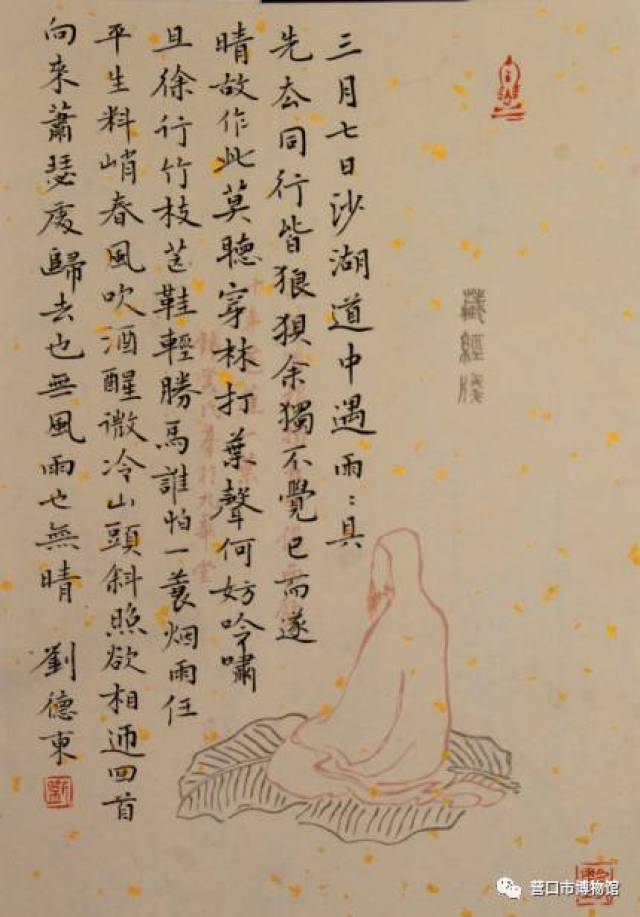 藏經箋
三月七日沙湖道中遇雨：具
先去同行皆狼狽余獨不覺已而遂
晴故作此莫聽穿林打葉聲何妨吟嘯
且徐行竹枝芒鞋輕勝馬誰怕一蓑烟雨任
平生料峭春風吹酒醒微冷山頭斜照欲相迎回首
向來蕭瑟處歸去也無風雨也無晴 劉德東
劉
营口市博物馆